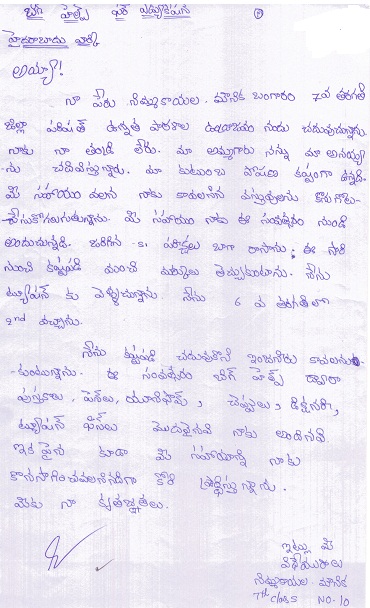 బిగ్ హెల్ప్ ఫర్ ఎడ్యుకేషన్
హైదరాబాదు వార్కి
అయ్యా!
నా పేరు నిమ్మకాయల. మౌనిక బంగారం 7వ తరగతి
జిల్లా పరిషత్ ఉన్నత పాఠశాల నందు చదువుచున్నాను.
నాకు నా తండ్రి లేరు. మా అమ్మగారు నన్ను మా
ను చదివిస్తున్నారు. మా కుటుంబ పోషణ కష్టంగా ఉన్నది.
మీ సహాయం వలన నాకు కావలసిన వస్తువులను కొనుగోలు-
చేసుకోగలుగుతున్నాను. మీ సహాయం నాకు ఈ సంవత్సరం నుండి
అందుచున్నది. జరిగిన పరీక్షలు బాగా రాసాను. ఈ సారి
నుంచి కష్టపడి మంచి మార్కులు తెచ్చుకుంటాను. నేను
ట్యూషన్ కు వెళ్ళుచున్నాను. నేను 6 వ తరగతిలో
2nd వచ్చాను.
నేను కష్టపడి చదువుకొని ఇంజనీరు కావాలను-
కుంటున్నాను. ఈ సంవత్సరం బిగ్ హెల్ప్ ద్వారా
పుస్తకాలు, పెన్‌లు, యూనిఫామ్, చెప్పులు, డిక్షనరీ,
ట్యూషన్ ఫీజులు మొదలైనవి నాకు అందినవి.
ఇక పైన కూడా మీ సహాయాన్ని నాకు
కొనసాగించవలసినదిగా కోరి ప్రార్థిస్తున్నాను.
మీకు నా కృతజ్ఞతలు.
ఇట్లు మీ
విధేయురాలు
నిమ్మకాయల. మౌనిక
7th class NO-10